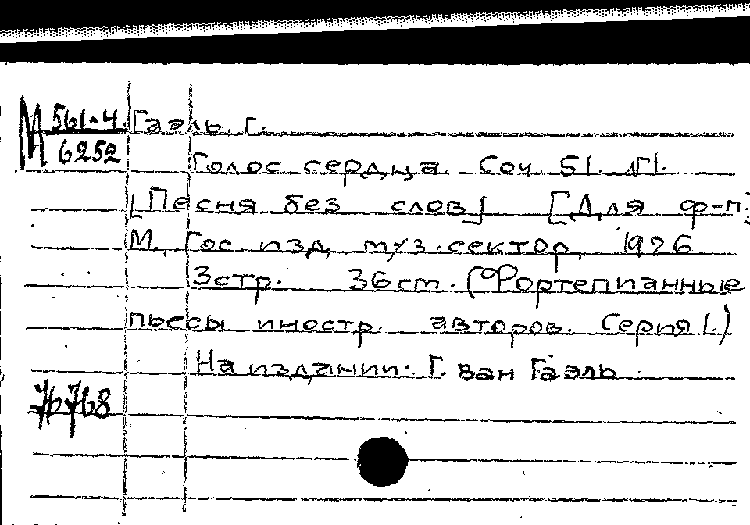 М 561-4
6252
Гаэль, Г.
Голос сердца. Соч. 51. №1.
[Песня без слов] [Для ф-п]
М., Гос. изд. муз. сектор, 1926
3стр. 36см. (Фортепианные
пьесы иностр. авторов. Серия I.)
На издании: Г. ван Гаэль
76768